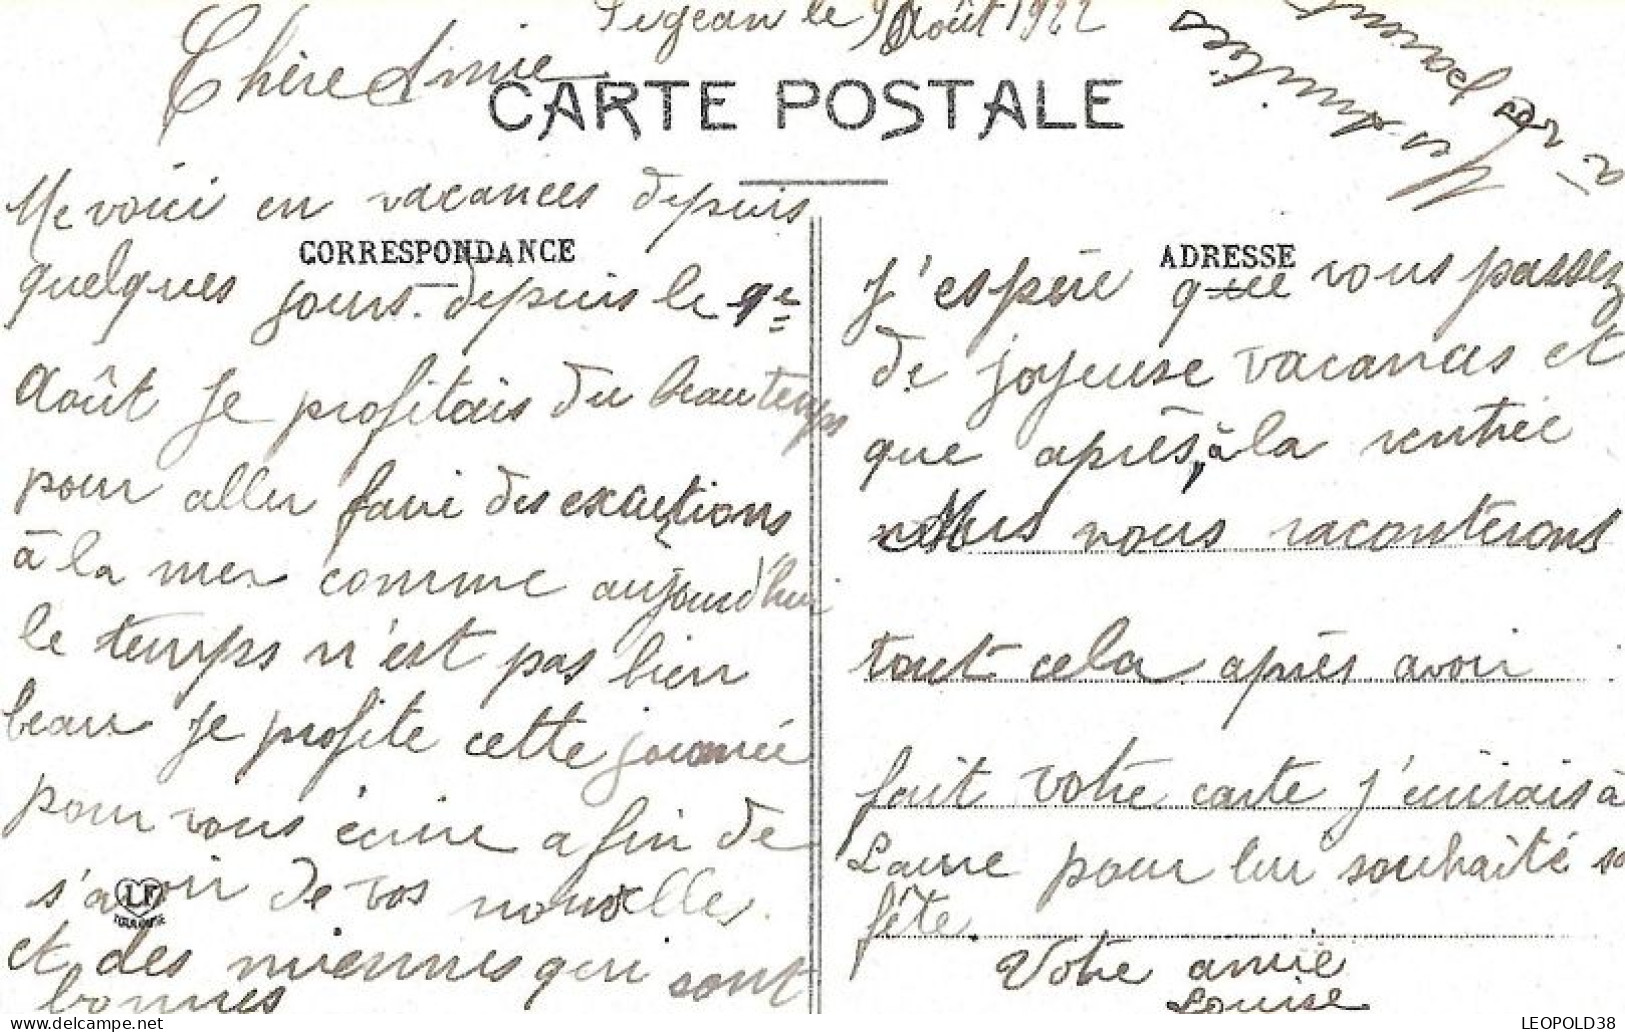 Sigean le 9 Août 1922
Chère Amie
CARTE POSTALE
Me voici en vacances depuis
CORRESPONDANCE
quelques jours. depuis le
Août je profitais du beau temps
pour aller faire des excurtions
à la mer comme aujourd'hui
le temps n'est pas bien
beau je profite cette journée
pour vous écrire afin de
s'avoir de vos nouvelles.
et des miennes qui sont
bonnes
LF
TOULOUSE
ADRESSE
J'espère que vous passez
de joyeuse vacances et
que après, à la rentrée
nous nous raconterons
tout cela après avoir
fait votre carte j'écrirais à
Laure pour lui souhaité sa
fête.
Votre amie
Louise
Mes Amitiés
à vos
LEOPOLD38